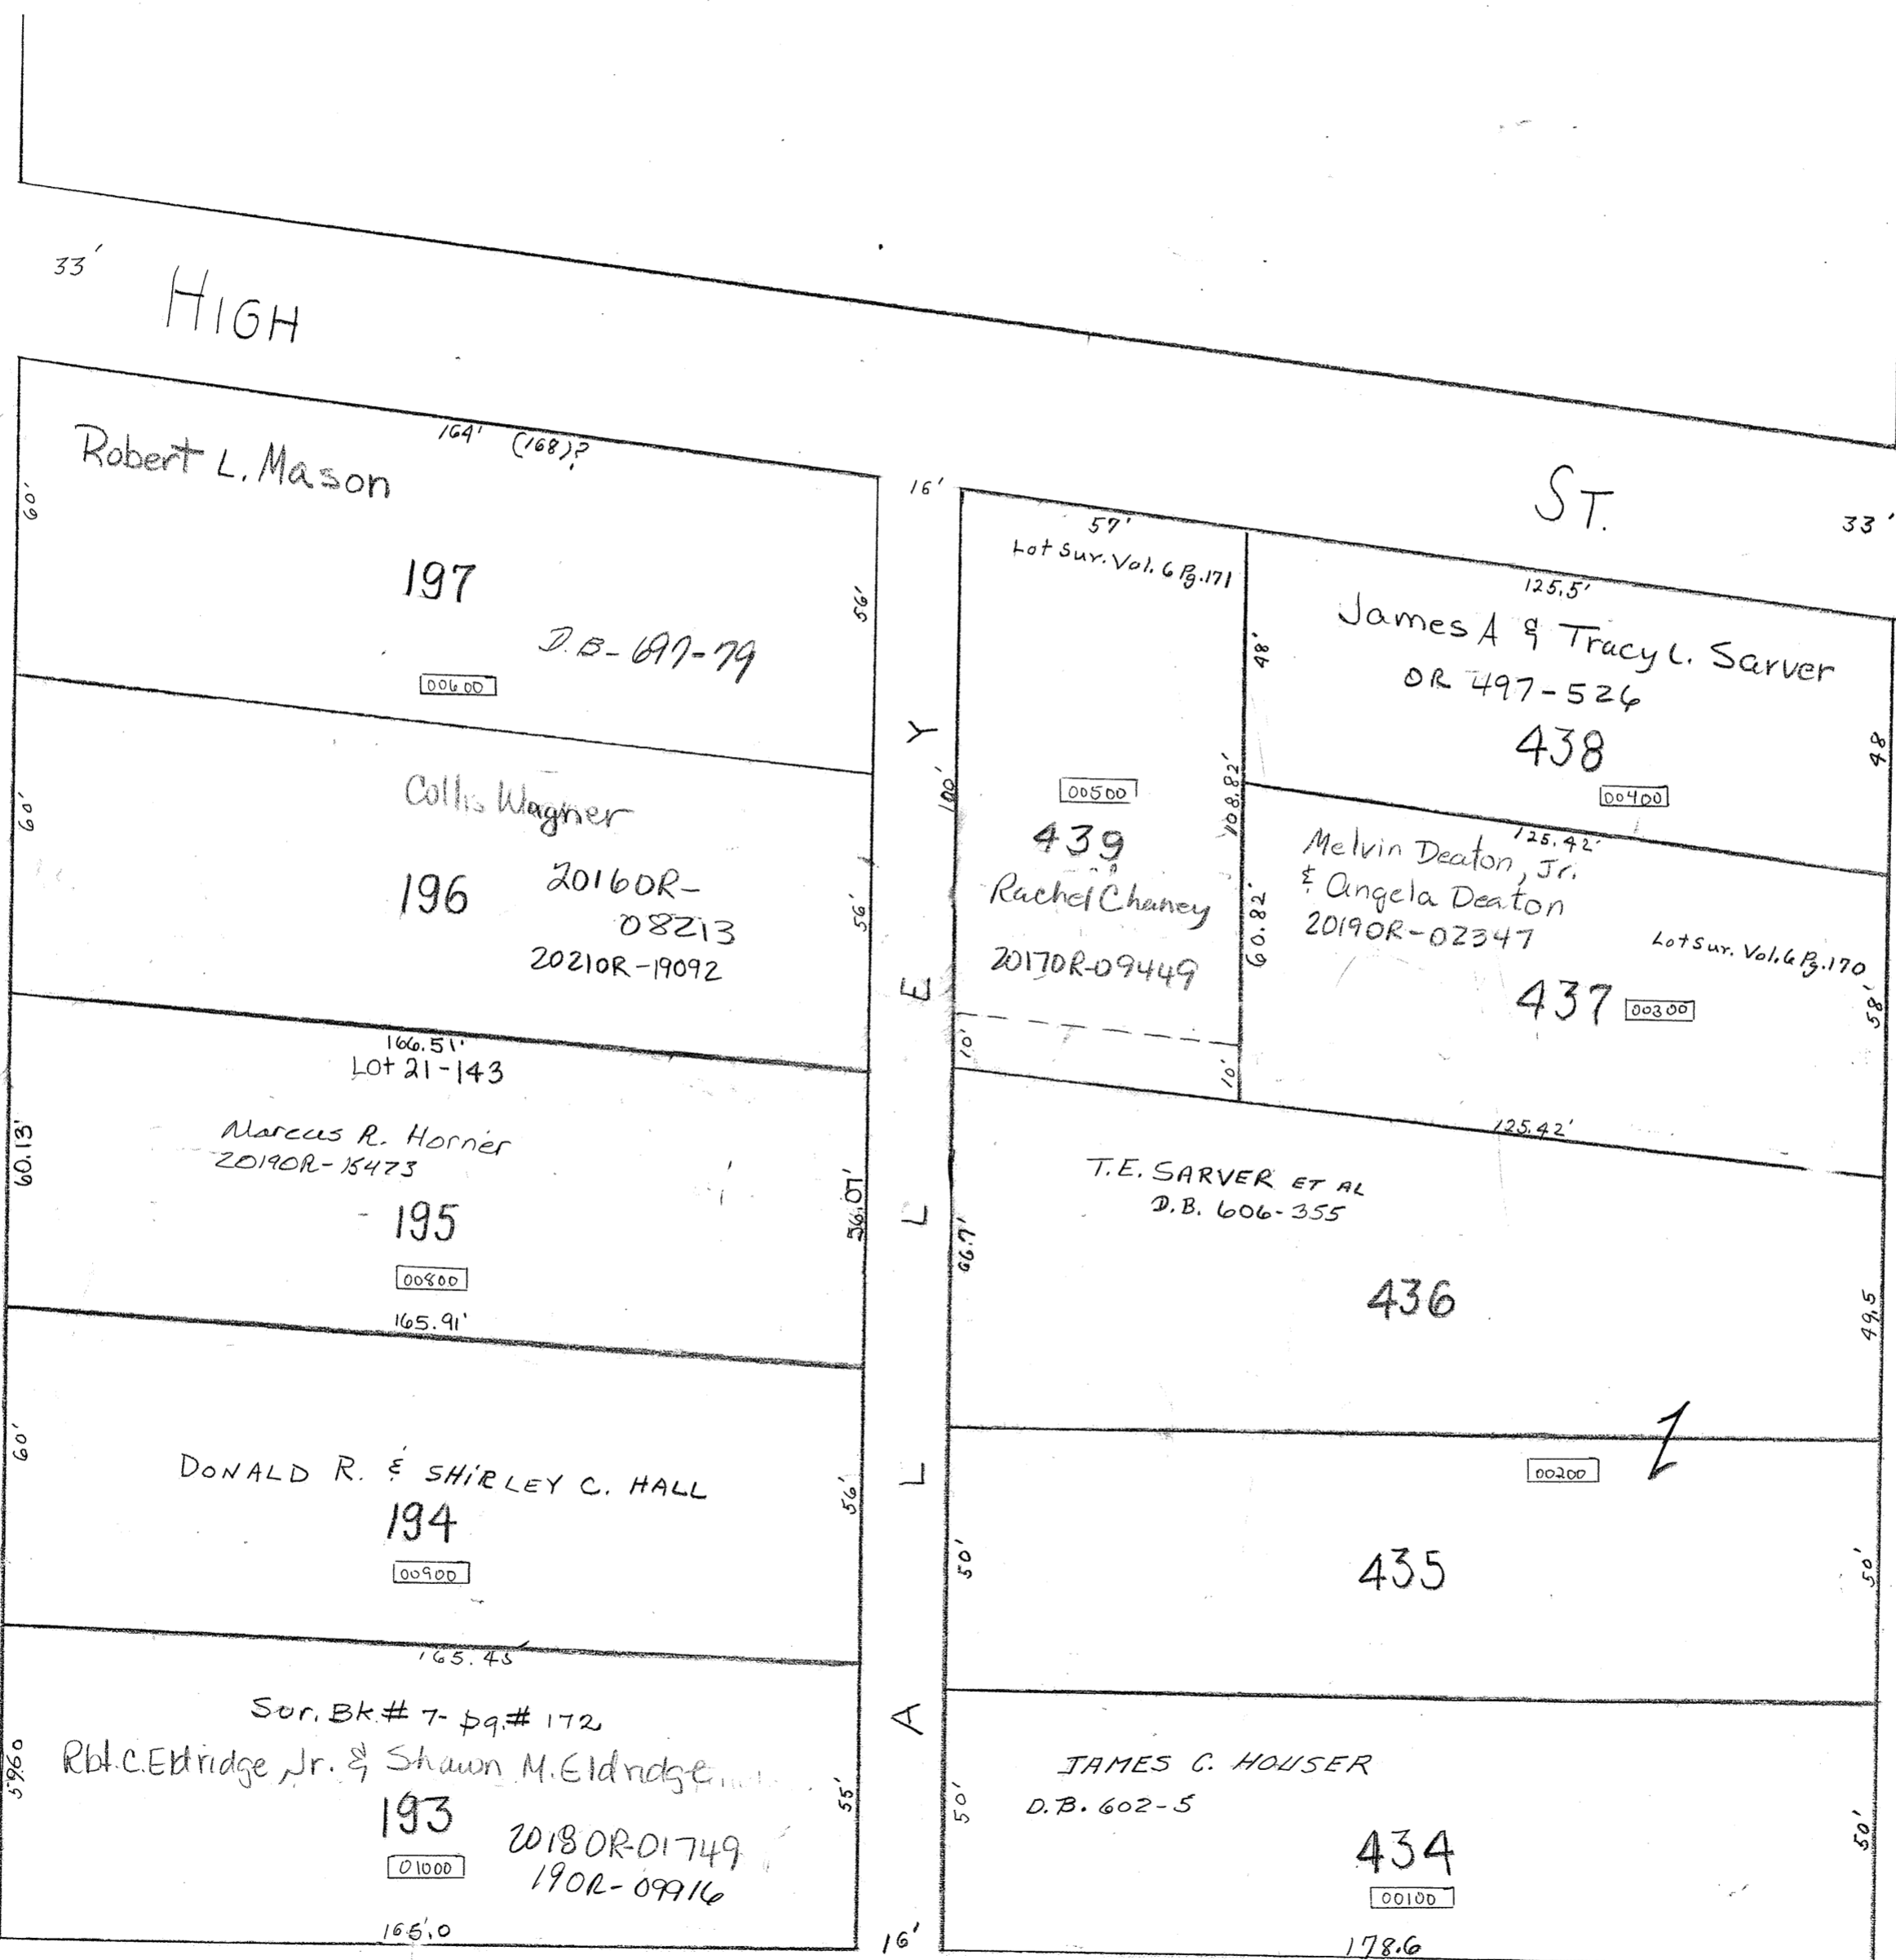 33'
HIGH
ST.
33'
164' (168)?
Robert L. Mason
60'
197
56'
D.B-697-79
00600
Collis Wagner
60'
196
20160R-
08213
20210R-19092
56'
166.51'
Lot 21-143
Marcus R. Horner
20190R-15473
60.13'
195
56.07'
00800
165.91'
60'
DONALD R. & SHIRLEY C. HALL
194
56'
00900
165.45
Sur. Bk.# 7- pg.# 172
Rbt.C.Eldridge Jr. & Shawn M.Eldridge
59.60
193
55'
20180R-01749
190R-09916
01000
165.0
16'
ALLEY
16'
57'
Lot Sur. Vol. 6 Pg.171
100'
48'
108.82'
00500
439
Rachel Chaney
20170R-09449
60.82'
10'
10'
125.5'
James A & Tracy L. Sarver
OR 497-526
438
48
00400
125.42'
Melvin Deaton, Jr.
& Angela Deaton
20190R-02347
Lot Sur. Vol.6 Pg.170
437
00300
58'
125.42'
T.E. SARVER ET AL
D.B. 606-355
66.7'
436
49.5
00200
50'
435
50'
JAMES C. HOUSER
D.B. 602-5
50'
434
50'
00100
178.6